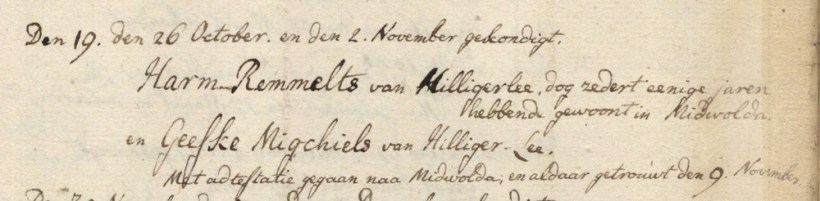 Den 19. den 26 October. en den 2. November gekondigt.
Harm Remmelts van Hilligerlee, dog zedert eenige jaren
hebbende gewoont in Midwolda
en Geeske Migchiels van Hilliger-Lee.
Met adtestatie gegaan naa Midwolda, en aldaar getrouwt den 9. November,